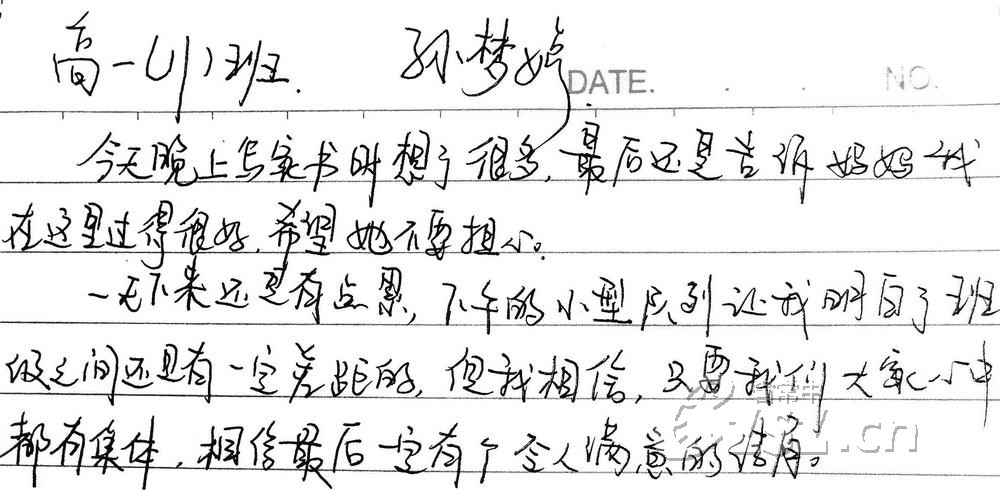 高一(11)班. 孙梦婷
DATE. NO.
今天晚上写家书时想了很多,最后还是告诉妈妈我
在这里过得很好,希望她不要担心。
一天下来还是有点累,下午的小型队列让我明白了班
级之间还是有一定差距的,但我相信,只要我们大家心中
都有集体,相信最后一定有个令人满意的结果。
.cn